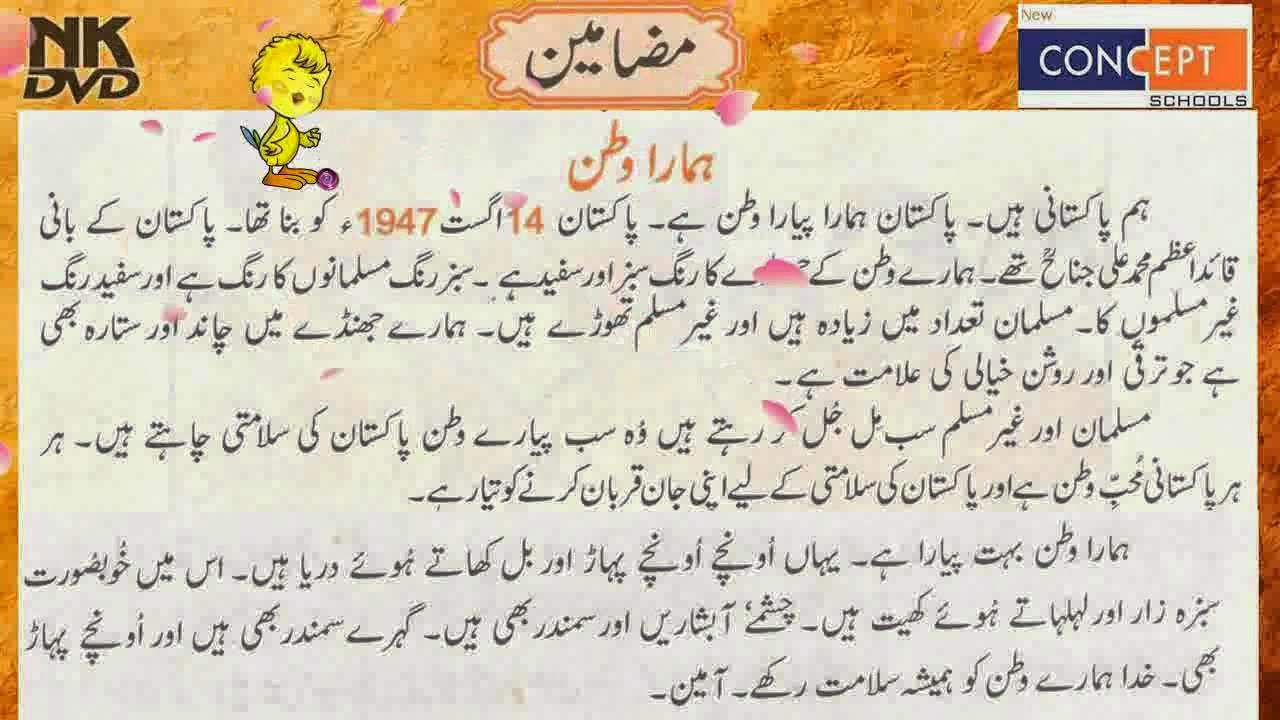 NK
DVD
مضامین
New
CONCEPT
SCHOOLS
ہمارا وطن
ہم پاکستانی ہیں۔ پاکستان ہمارا پیارا وطن ہے۔ پاکستان 14 اگست 1947ء کو بنا تھا۔ پاکستان کے بانی
قائداعظم محمد علی جناحؒ تھے۔ ہمارے وطن کے کا رنگ سبز اور سفید ہے۔ سبز رنگ مسلمانوں کا رنگ ہے اور سفید رنگ
غیر مسلموں کا۔ مسلمان تعداد میں زیادہ ہیں اور غیر مسلم تھوڑے ہیں۔ ہمارے جھنڈے میں چاند اور ستارہ بھی
ہے جو ترقی اور روشن خیالی کی علامت ہے۔
مسلمان اور غیر مسلم سب مِل جُل کر رہتے ہیں وُہ سب پیارے وطن پاکستان کی سلامتی چاہتے ہیں۔ ہر
ہر پاکستانی مُحبِّ وطن ہے اور پاکستان کی سلامتی کے لیے اپنی جان قربان کرنے کو تیار ہے۔
ہمارا وطن بہت پیارا ہے۔ یہاں اُونچے اُونچے پہاڑ اور بل کھاتے ہُوئے دریا ہیں۔ اس میں خُوبصُورت
سبزہ زار اور لہلہاتے ہُوئے کھیت ہیں۔ چشمے، آبشاریں اور سمندر بھی ہیں۔ گہرے سمندر بھی ہیں اور اُونچے پہاڑ
بھی۔ خدا ہمارے وطن کو ہمیشہ سلامت رکھے۔ آمین۔